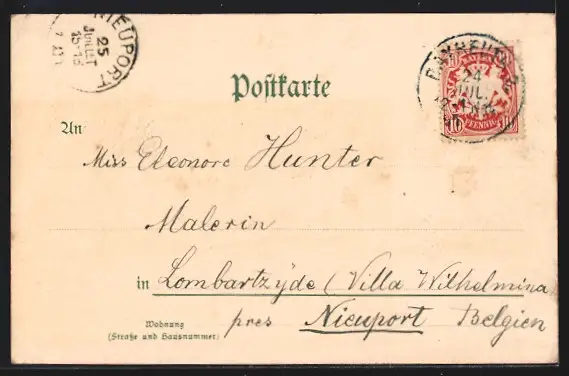 NIEUPORT
25
JUILLET
15-16
BAYREUTH
24
JUL.
10 BAYERN 10
10 PFENNIG 10
Postkarte
An
Miss Eleonore Hunter
Malerin
in Lombartzyde (Villa Wilhelmina
Wohnung
(Straße und Hausnummer)
pres Nieuport Belgien